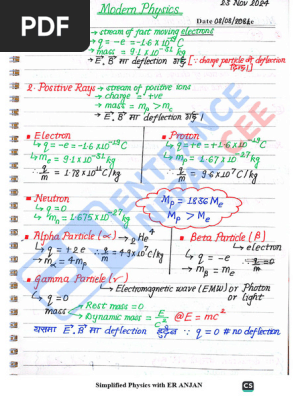 PDF
Modern Physics
23 Nov 2024
Date 08/08/2081c
→ stream of fast moving electrons
→ q = -e = -1.6 × 10⁻¹⁹ C
→ mass = 9.1 × 10⁻³¹ kg
→ E⃗, B⃗ मा deflection हुन्छ [∵ charge particle को deflection हुन्छ]
2. Positive Rays → stream of positive ions
→ charge = +ve
→ mass = mₙ > mₑ
→ E⃗, B⃗ मा deflection हुन्छ।
Electron
↳ q = -e = -1.6 × 10⁻¹⁹ C
↳ mₑ = 9.1 × 10⁻³¹ kg
∴ q/m = 1.78 × 10¹¹ C/kg
Proton
↳ q = +e = +1.6 × 10⁻¹⁹ C
↳ mₚ = 1.67 × 10⁻²⁷ kg
∴ q/m = 9.6 × 10⁷ C/kg
Neutron
↳ q = 0
↳ mₙ = 1.675 × 10⁻²⁷ kg
Mₚ = 1836 Mₑ
Mₚ > Mₑ
Alpha Particle (α) → ₂He⁴
↳ q = +2e
↳ mα = 4mₚ
Beta Particle (β)
↳ electron
↳ q = -e
↳ mB = me
Gamma Particle (γ)
↳ Electromagnetic wave (EMW) or Photon
or light
↳ q = 0
mass
Rest mass = 0
Dynamic mass = E/c² @ E = mc²
यसमा E⃗, B⃗ मा deflection हुँदैन ∵ q = 0 # no deflection
Simplified Physics with ER ANJAN
CS